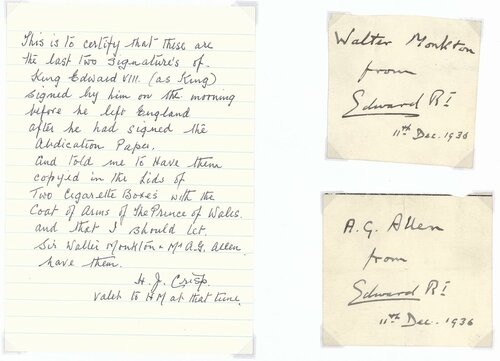 This is to certify that these are
the last two Signature's of
King Edward VIII. (as King)
signed by him on the morning
before he left England
after he had signed the
Abdication Paper.
And told me to Have them
copyed in the Lids of
Two Cigarette Boxes with the
Coat of Arms of The Prince of Wales.
and that I should let.
Sir Walter Monkton & Mr A.G. Allen
have them.
H. J. Crisp.
Valet to HM at that time.
Walter Monkton
from
Edward RI
11th Dec. 1936
A. G. Allen
from
Edward RI
11th Dec. 1936